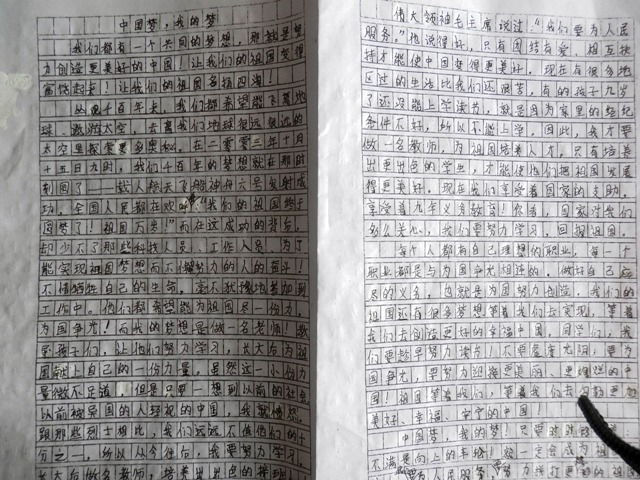 中国梦，我的梦
我们都有一个共同的梦想，那就是努
力创造更美好的中国！让我们的祖国变得
富饶起来！让我们的祖国名扬四海！
千百年来，我们都希望能飞离地
球，遨游太空，去离我们地球很远很远的
太空里探索更多奥秘。在二零零三年十月
十五日九时，我们千百年的梦想就在那时
刻圆了——载人航天飞船神舟六号发射成
功。全国人民都在欢呼“我们的祖国终于
圆梦了！祖国万岁！”而在这成功的背后，
却少不了那些科技人员、工作人员，为了
能实现祖国梦想而不懈努力的人的奋斗！
不惜牺牲自己的生命，毫不犹豫地参加到
工作中。他们都希望能为祖国尽一份力，
为国争光！而我的梦想是做一名老师！教
孩子们，让他们努力学习，长大后为祖
国献上自己的一份力量。虽然这一小份力
量微不足道，但是只要一想到以前的社会
以前被异国的人轻视的中国，我就
跟那些烈士相比，我们远远不值他们的十
分之一。所以从今往后，我要努力学习，
长大后做名教师，培养出出色的接班
伟大领袖毛主席说过：“我们要为人民
服务。”他说得好，只有团结有爱，相互扶
持才能使中国变得更美好。现在有很多地
区过的生活比我们还艰苦，有的孩子九岁
了还没能上学读书，就是因为家里的经纪
条件不好，所以不能上学。因此，我才要
做一名教师，为祖国培养人才。只有培养
出更出色的学生，才能使他们把祖国发展
得更美好。现在我们享受着国家的支助，
享受着九年义务教育！你看，国家对我们
多么关心，我们要努力学习，回报祖国。
每个人都有自己理想的职业，每一个
职业都是与为国争光相连的。做好自己应
尽的义务，也就是为国努力创造。我们的
祖国还有很多梦想等我们去实现，等着
我们去创造更好的幸福中国。同学们，我
们要趁早努力读书！不要虚度光阴；要为
国争光，要努力迎接更美丽、更的中
国！祖国等着我们，等着我们去更加
美好、幸福、安宁的中国！
中国梦，我的梦！只要
不满足向上的斗绪！就一定会成为祖国
为人民服务，努力接扛更好的祖国